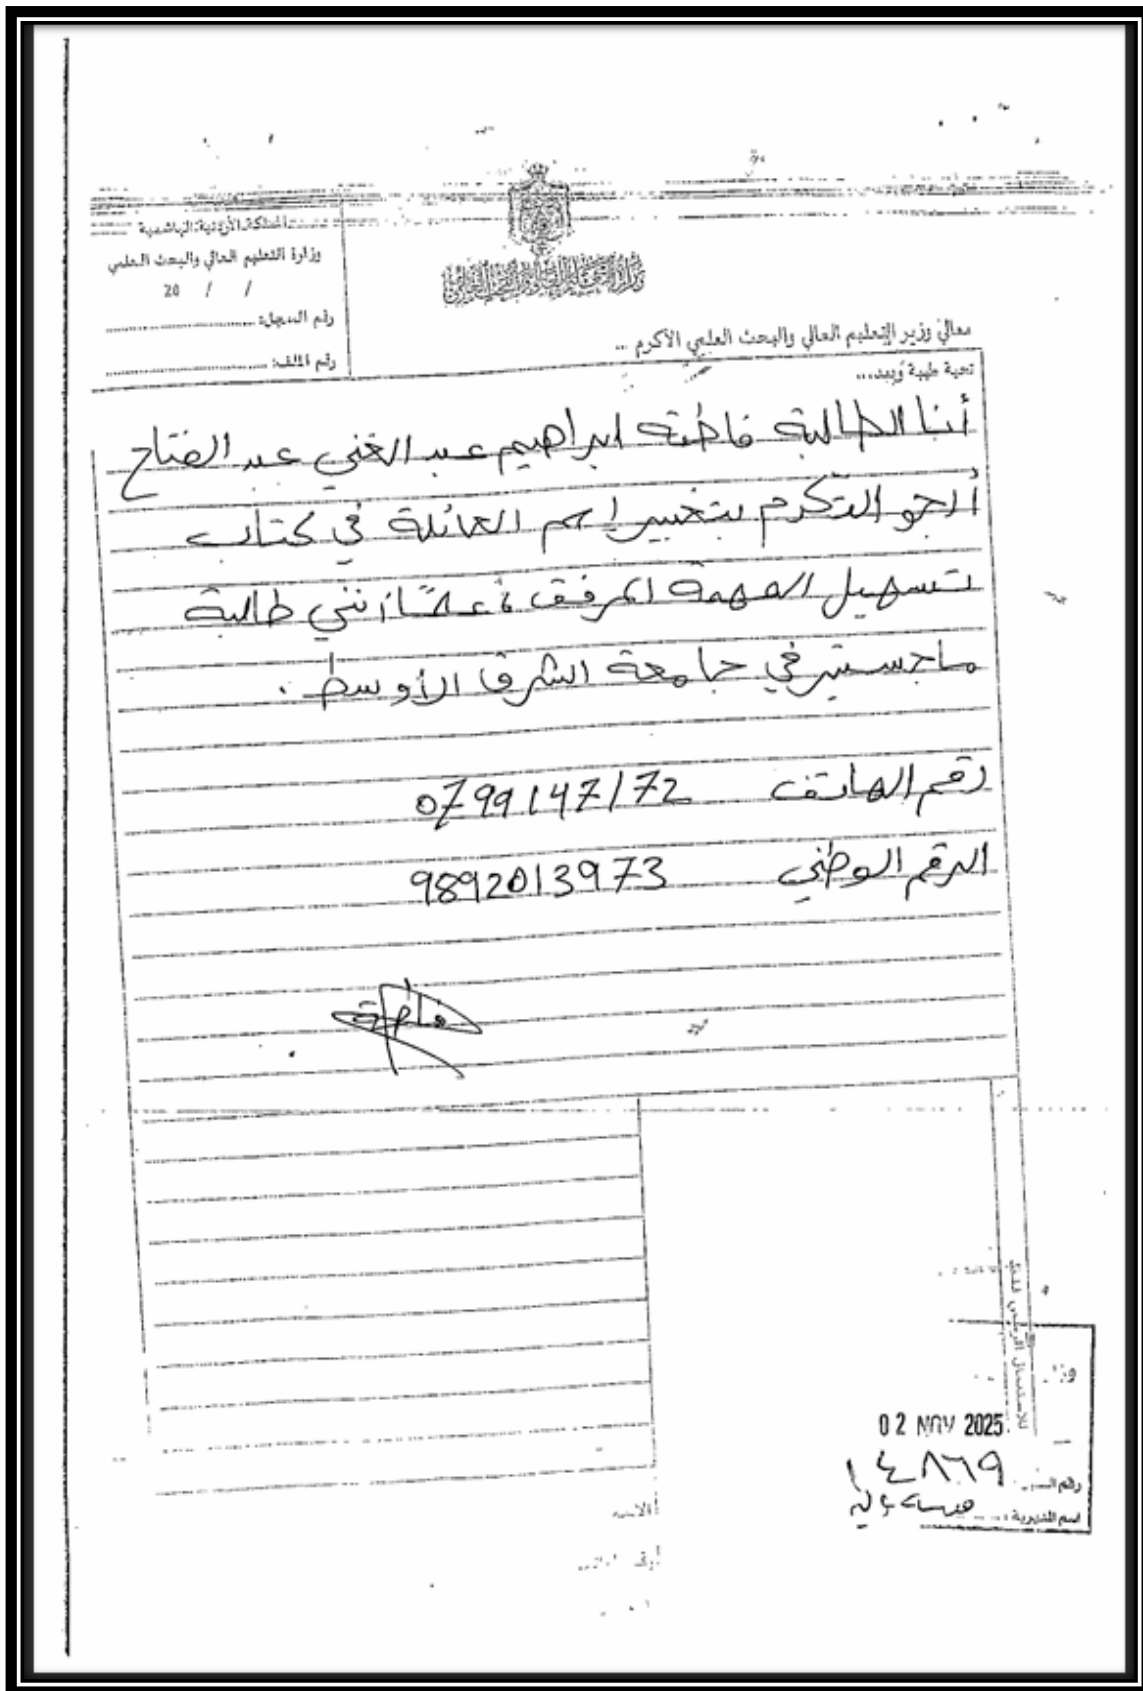 المملكة الأردنية الهاشمية
وزارة التعليم العالي والبحث العلمي
20 / /
رقم السجل:
رقم الملف:
وزارة التعليم العالي والبحث العلمي
معالي وزير التعليم العالي والبحث العلمي الاكرم ...
تحية طيبة وبعد...
أنا الطالبة فاطمة ابراهيم عبد الغني عبد الفتاح
أرجو التكرم بتغيير اسم العائلة في كتاب
تسهيل المهمة المرفق، علمًا أنني طالبة
ماجستير في جامعة الشرق الأوسط.
رقم الهاتف 0799147172
الرقم الوطني 9892013973
فاطمة
للاستعمال الرسمي فقط
02 NOV 2025
رقم ١٤٨٦٩
اسم المديرية:
الاسم